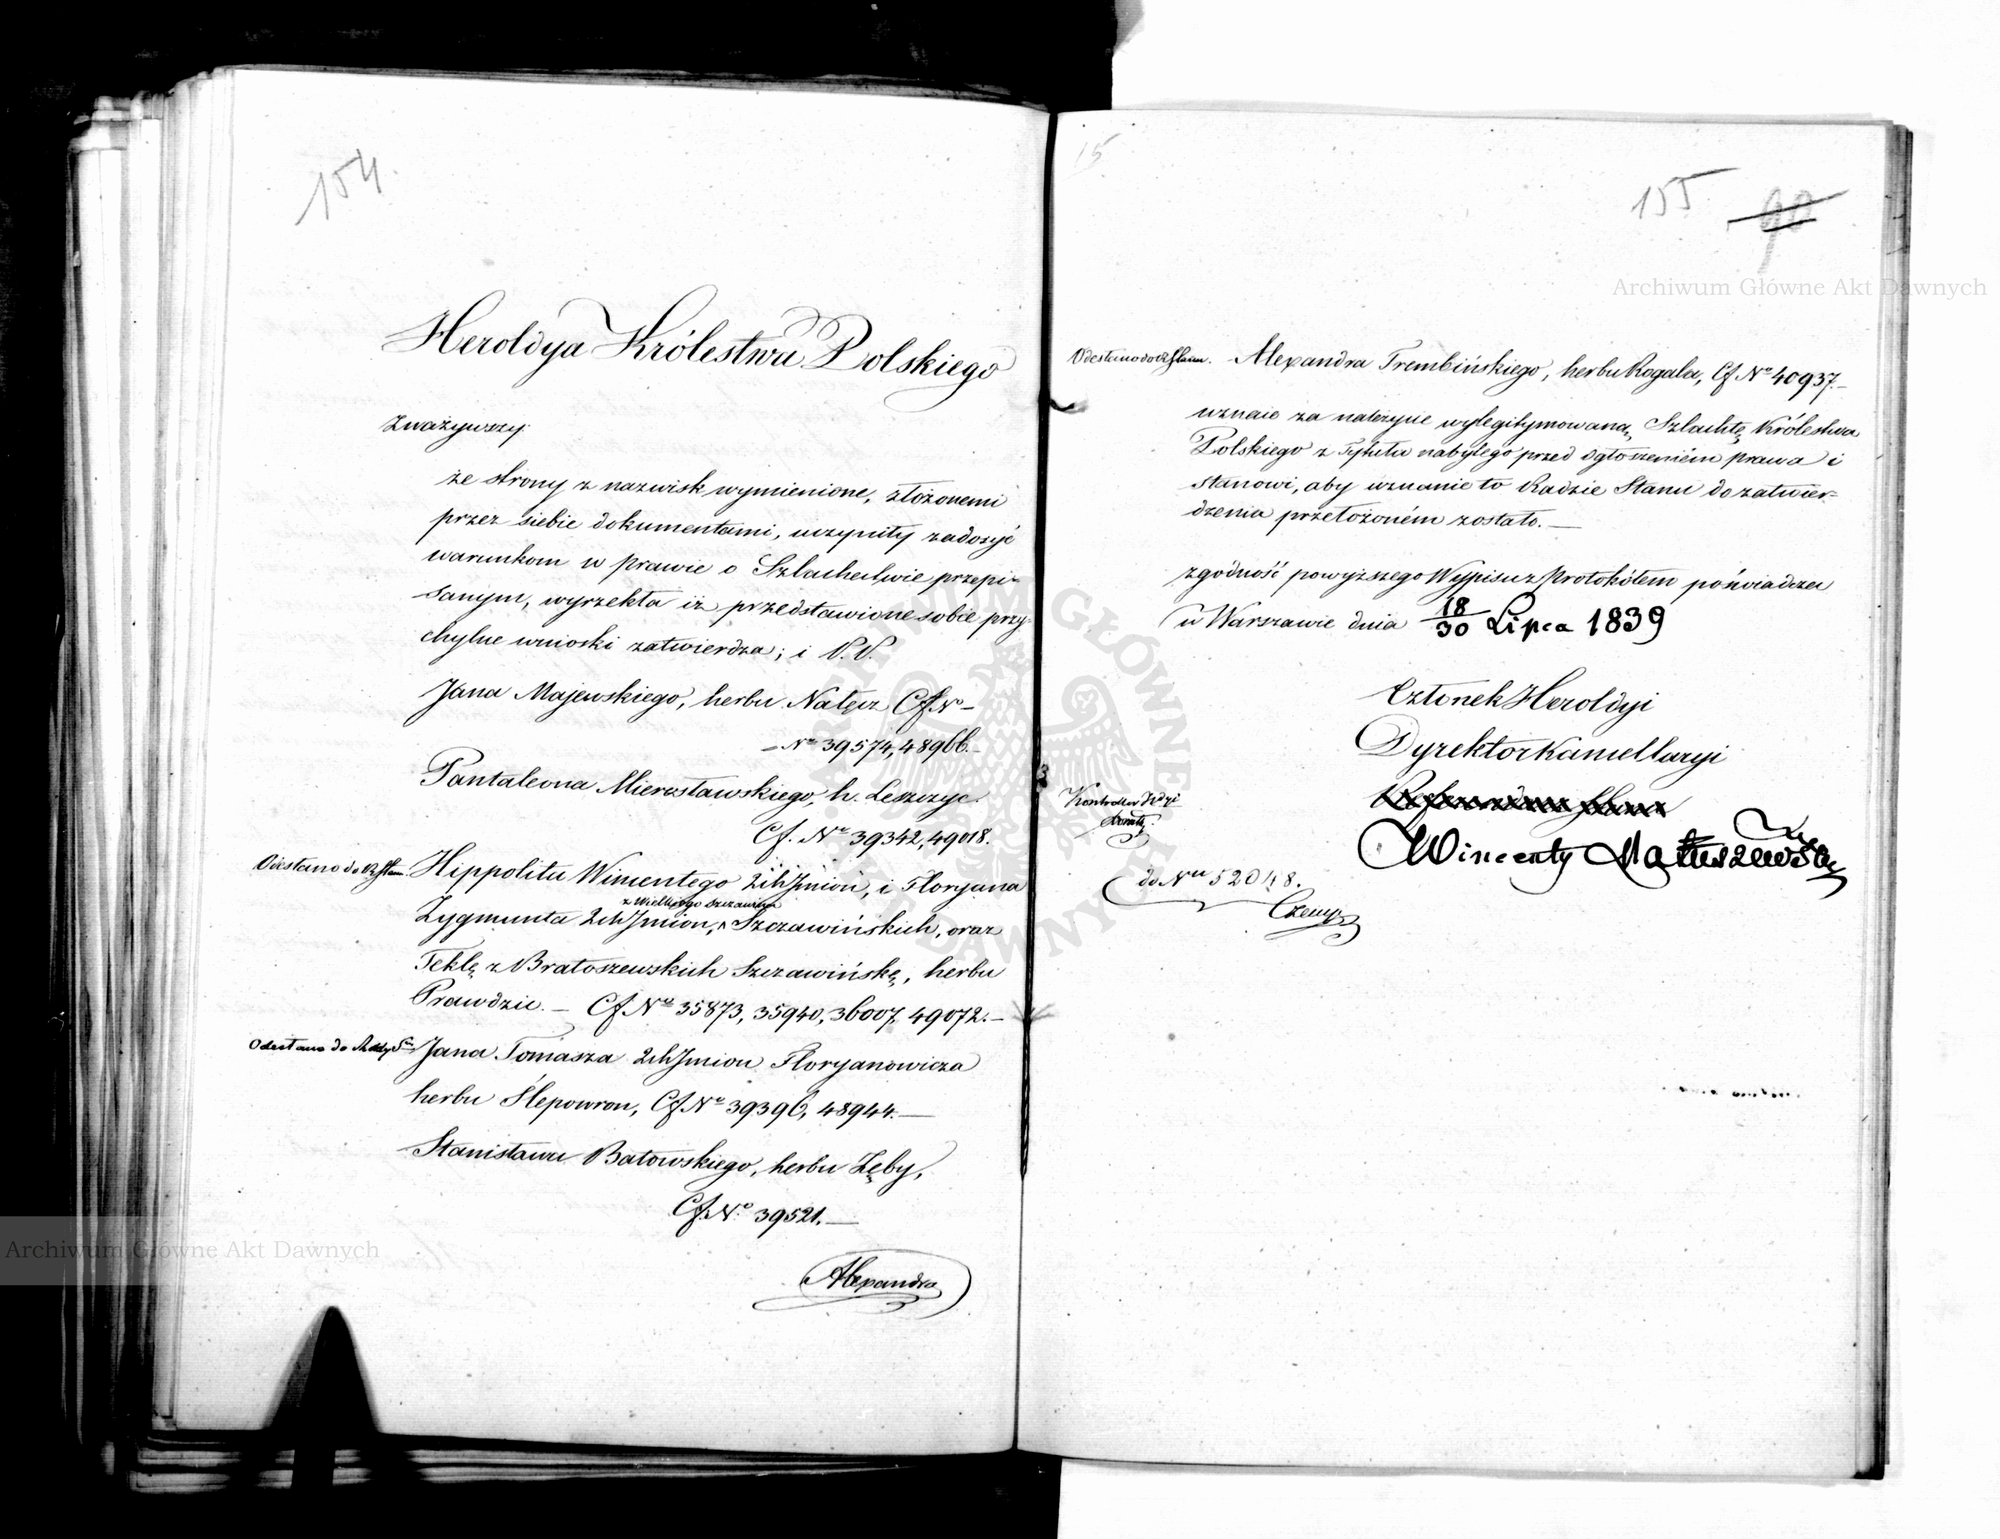 154.
Heroldya Królestwa Polskiego
Zważywszy
że strony z nazwisk wymienione, złożonemi
przez siebie dokumentami, uczyniły zadosyć
warunkom w prawie o Szlachectwie przepi-
sanym, wyrzekła iż przedstawione sobie przy-
chylne wnioski zatwierdza; i V.V.
Jana Majewskiego, herbu Nałęcz Cf. No
No 39574, 48966.
Pantaleona Mierosławskiego, h. Leszczyc.
Cf. No 39342, 49018.
Odesłano do
Hippolita Wincentego 2ch Jmion, i Floryana
z Wielkiego Szczawina
Zygmunta 2ch Jmion, Szczawińskich, oraz
Teklę z Bratoszewskich Szczawińską, herbu
Prawdzic. Cf. No 35873, 35940, 36007, 49072.
Odesłano do
Jana Tomasza 2ch Jmion Floryanowicza
herbu Ślepowron, Cf. No 39396, 48944.
Stanisława Batowskiego, herbu Zęby,
Cf. No 39521.
Alexandra
15
155
90
Odesłano do
Alexandra Trembińskiego, herbu Rogala, Cf. No 40937.
uznaie za należycie wylegitymowaną Szlachtę Królestwa
Polskiego z Tytułu nabytego przed ogłoszeniem prawa i
stanowi, aby uznanie to Radzie Stanu do zatwier-
dzenia przełożoném zostało.
Zgodność powyższego Wypisu z Protokółem poświadcza
w Warszawie dnia 18/30 Lipca 1839
Członek Heroldyi
Dyrektor Kancellaryi
Wincenty Matuszewski
do No 52048.
Archiwum Główne Akt Dawnych
Archiwum Główne Akt Dawnych